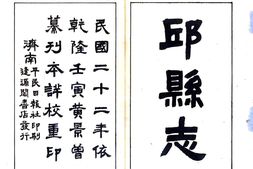 邱縣志
民國二十二年依
乾隆壬寅黃景曾
纂刊本詳校重印
濟南平民日報社印刷
逹源閣書店發行